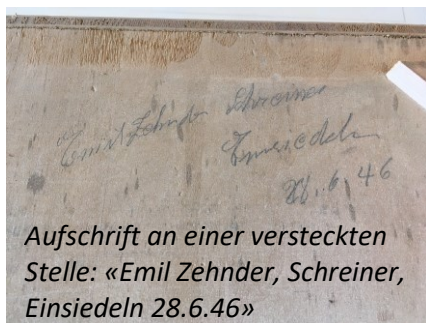 Emil Zehnder Schreiner
Einsiedeln
28.6.46
Aufschrift an einer versteckten
Stelle: «Emil Zehnder, Schreiner,
Einsiedeln 28.6.46»